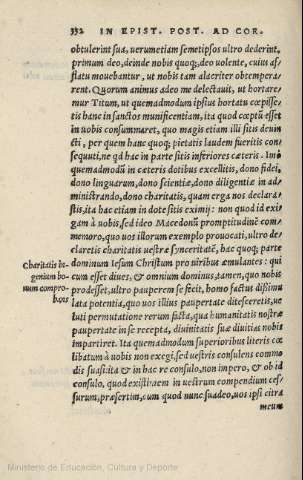 332 IN EPIST. POST. AD COR.
obtulerint sua, verumetiam semetipsos ultro dederint,
primum deo, deinde nobis quoq;, deo uolente, cuius af-
flatu mouebantur, ut nobis tam alacriter obtempera-
rent. Quorum animus adeo me delectauit, ut hortare-
mur Titum, ut quemadmodum ipsius hortatu cœpisse-
tis hanc in sanctos munificentiam, ita quod cœptũ esset
in uobis consummaret, quo magis etiam illi sitis deuin
cti, per quem hanc quoq; pietatis laudem fueritis con-
sequuti, ne qd hac in parte sitis inferiores cæteris. Imò
quemadmodũ in cæteris dotibus excellitis, dono fidei,
dono linguarum, dono scientiæ, dono diligentiæ in ad-
ministrando, dono charitatis, quam erga nos declara-
stis, ita hac etiam in dote sitis eximij: non quod id exi-
gam à uobis, sed ideo Macedonũ promptitudinẽ com-
memoro, quo uos illorum exemplo prouocati, ultro de-
claretis charitatis uestræ synceritatẽ, hac quoq; parte
dominum Iesum Christum pro uiribus æmulantes: qui
cum esset diues, & omnium dominus, tamen, quo nobis
prodesset, ultro pauperem se fecit, homo factus dissimu
lata potentia, quo uos illius paupertate ditesceretis, ue
luti permutatione rerum facta, qua humanitatis nostræ
paupertate in se recepta, diuinitatis suæ diuitias nobis
impartiret. Ita quemadmodum superioribus literis col
libatum à uobis non exegi, sed uestris consulens commo
dis suasi, ita & in hac re consulo, non impero, & ob id
consulo, quod existimem in uestrum compendium ces-
surum, præsertim, cum quod nunc suadeo, uos ipsi citra
meum
Charitatis in-
genium bo-
num compro-
bans
Ministerio de Educación, Cultura y Deporte